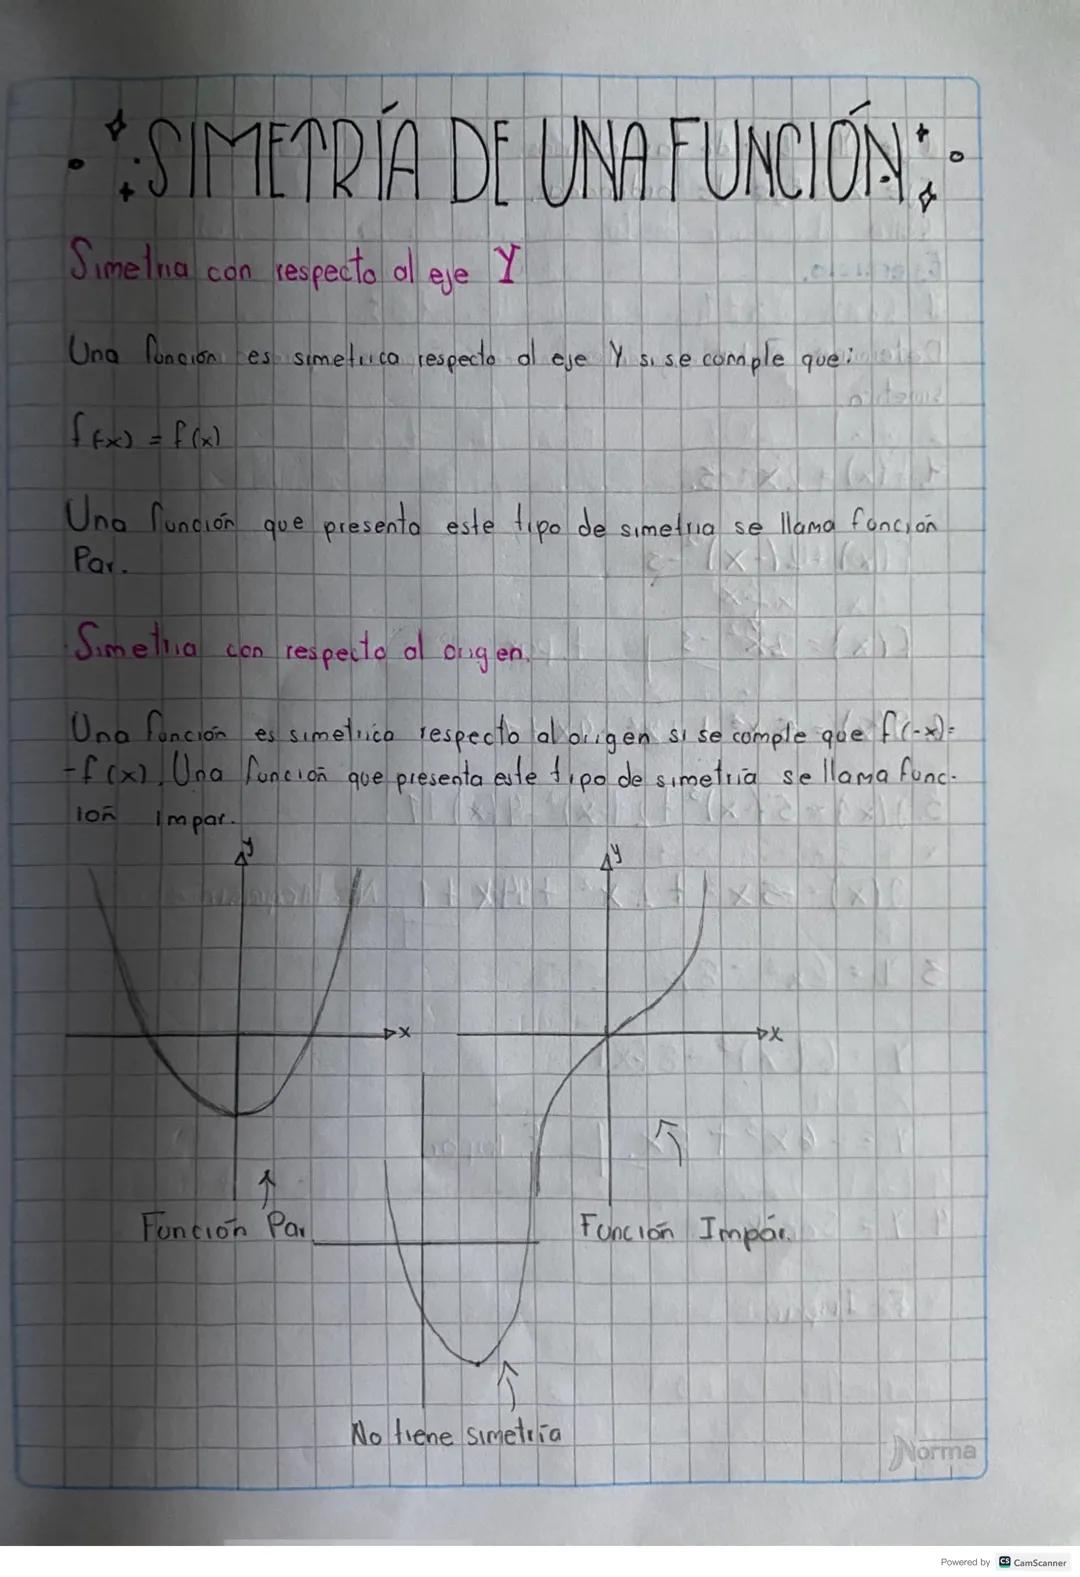 SIMETRÍA DE UNA FUNCIÓN
Simetria con respecto al eje Y
Una función es simetrica respecto al eje Y si se comple que:
f(-x) = f(x)
Una función que presenta este tipo de simetria se llama función
Par.
Simetria con respecto al origen.
Una función es simetrica respecto al origen si se comple que f(-x)=
-f(x). Una función que presenta este tipo de simetría se llama func-
ión impar.
y
y
x
x
Función Par
Función Impár.
No tiene simetría
Norma
Powered by CS CamScanner